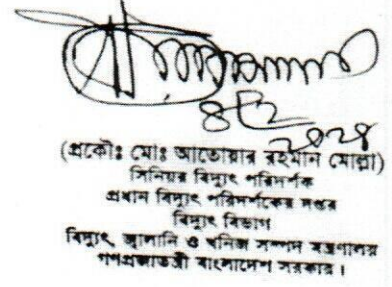 (প্রকৌঃ মোঃ আতোয়ার রহমান মোল্লা)
সিনিয়র বিদ্যুৎ পরিদর্শক
প্রধান বিদ্যুৎ পরিদর্শকের দপ্তর
বিদ্যুৎ বিভাগ
বিদ্যুৎ, জ্বালানি ও খনিজ সম্পদ মন্ত্রণালয়
গণপ্রজাতন্ত্রী বাংলাদেশ সরকার।